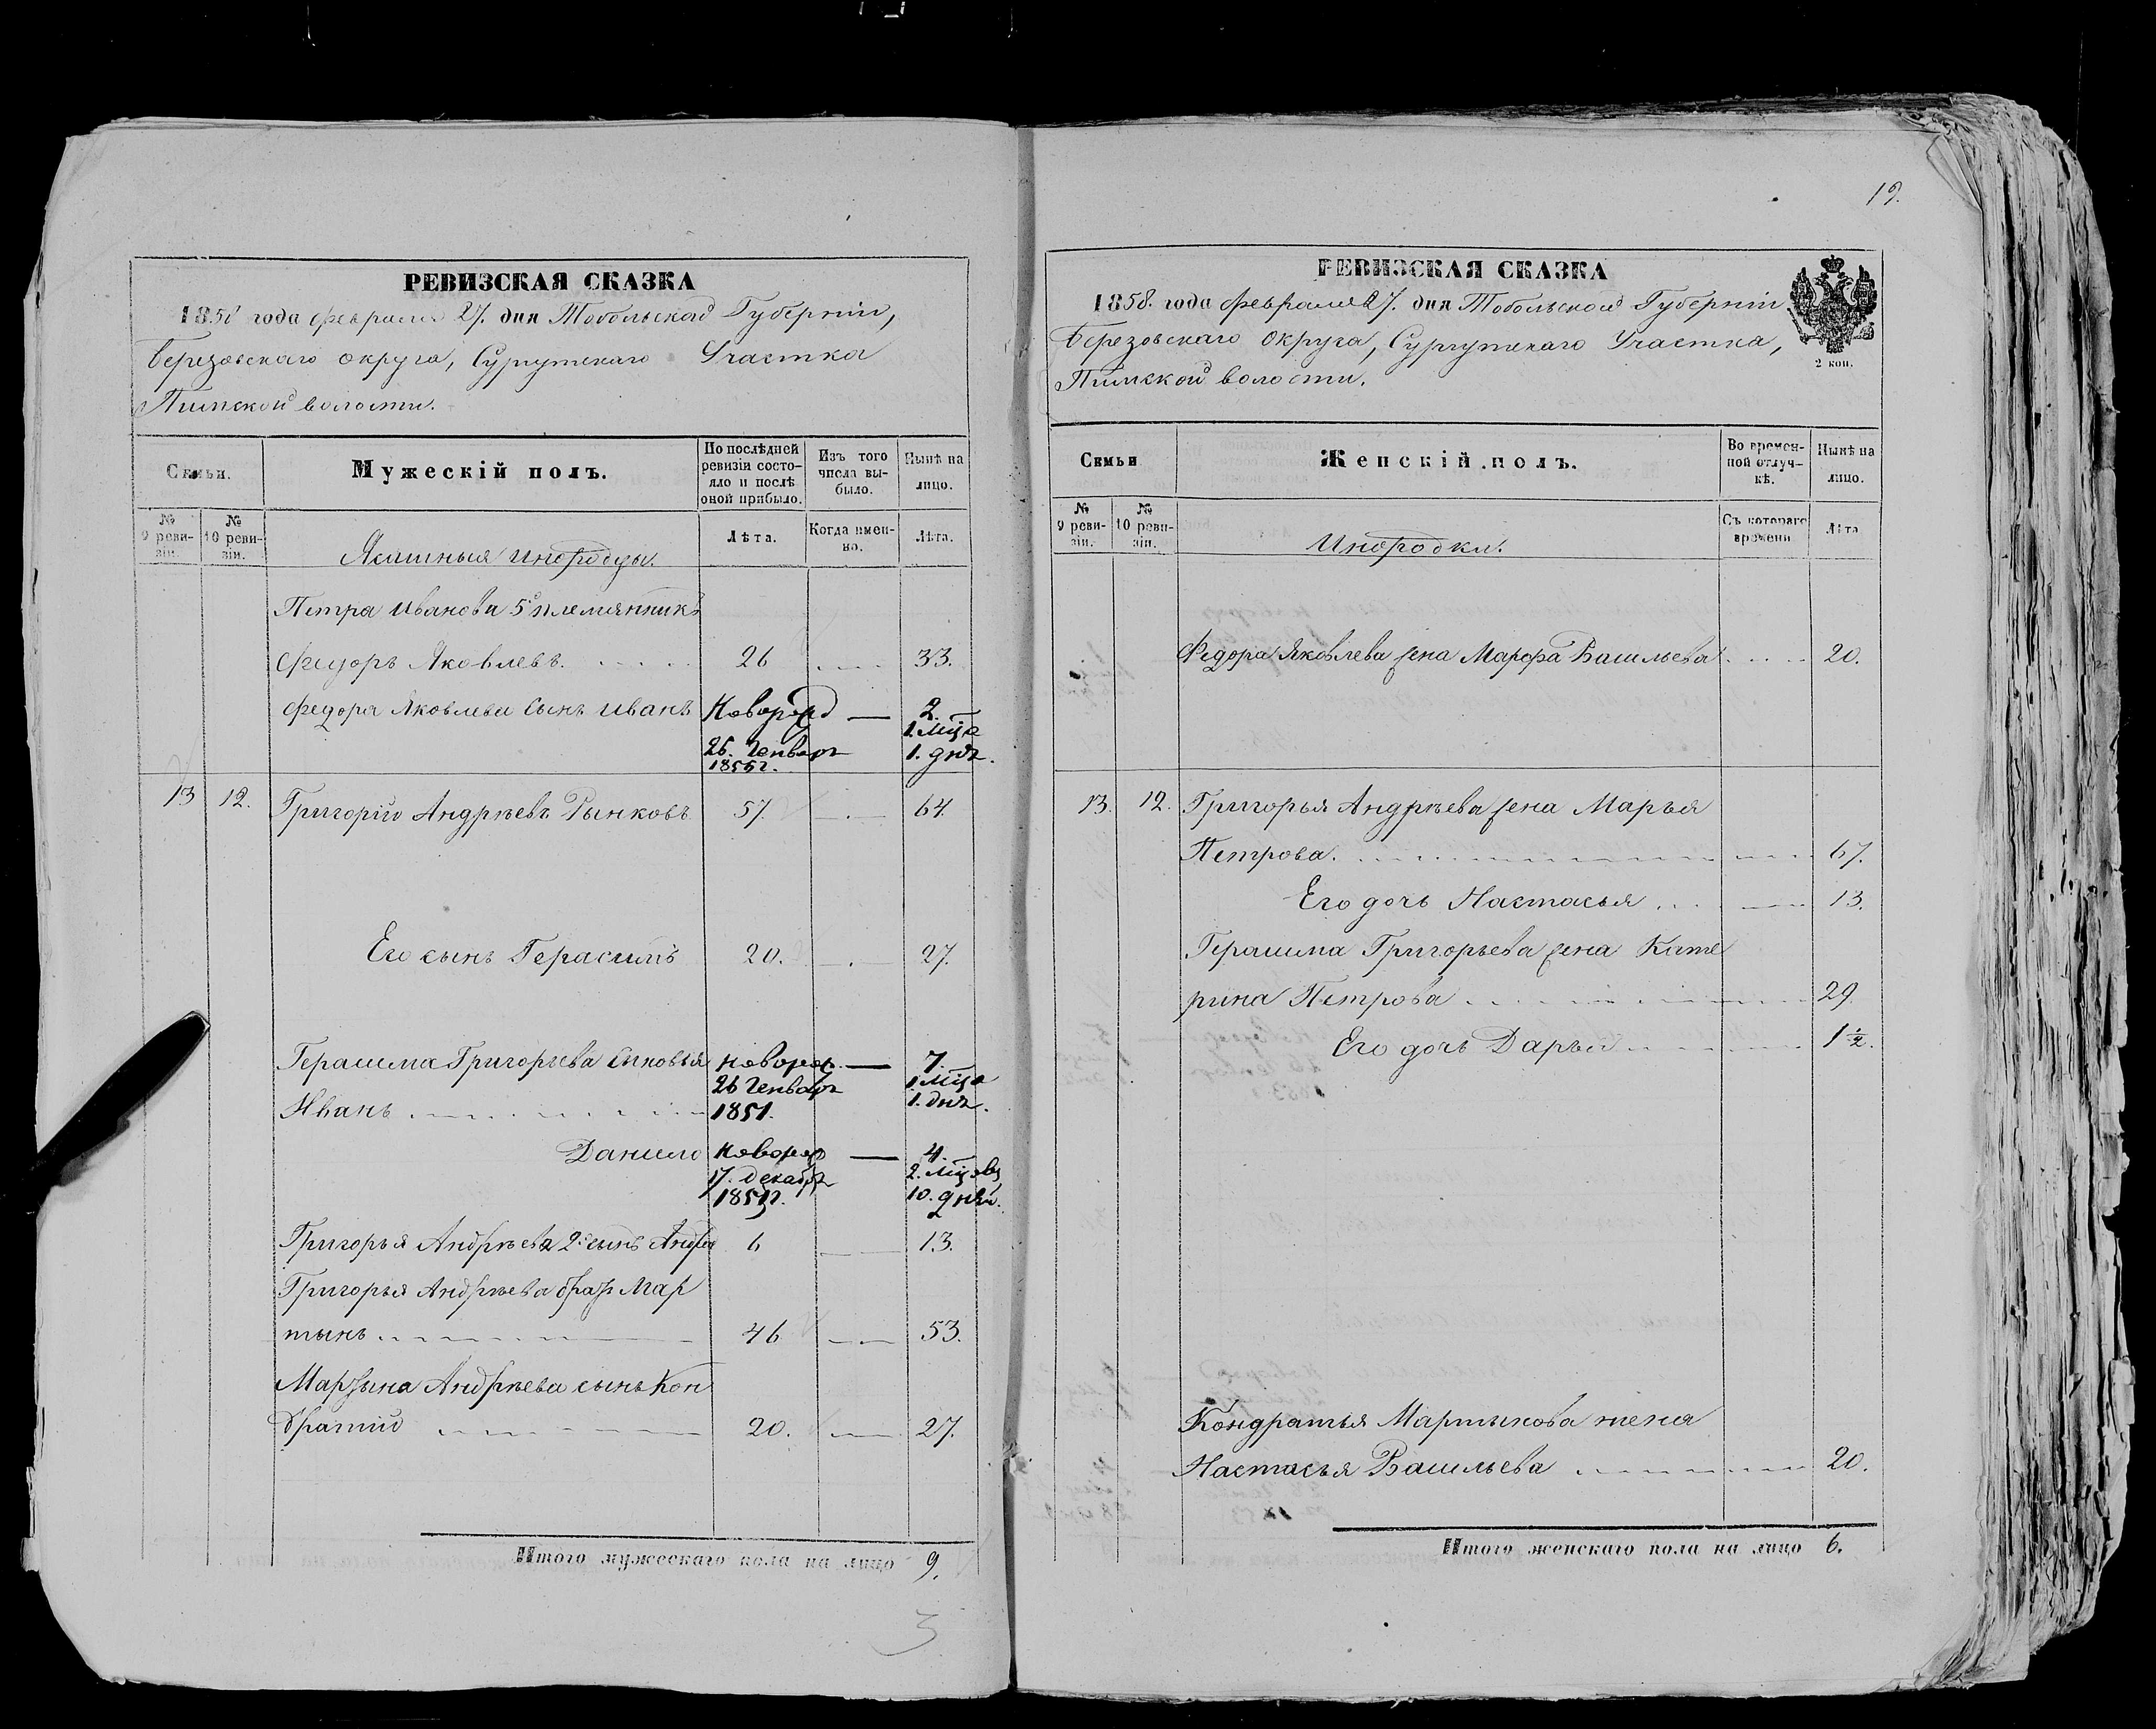 19.
РЕВИЗСКАЯ СКАЗКА
1858 года февраля 27. дня Тобольской Губерніи,
Березовскаго округа, Сургутскаго Участка
Пимской волости.
Семьи.
Мужескій полъ.
По послѣдней ревизіи состояло и послѣ оной прибыло.
Изъ того числа выбыло.
Нынѣ на лицо.
№ 9 ревизіи.
№ 10 ревизіи.
Лѣта.
Когда именно.
Лѣта.
Ясашныя инородцы.
Петра Иванова 5й племянникъ
Федоръ Яковлевъ. 26 33.
Федора Яковлева сынъ Иванъ Новорожд — 2.
1. Мцъ
26. Генваря 1. днь.
1856 г.
13 12. Григорій Андрѣевъ Рынковъ 57. 64.
Его сынъ Герасимъ 20. 27.
Герасима Григорьева сыновья новорож. — 7.
26 Генваря 1. Мцъ
Иванъ 1851. 1. днь.
Данило новорож — 4.
17. декабря 2. Мцовъ
1853 г. 10. дней.
Григорья Андрѣева 2й сынъ Андрей 6 13.
Григорья Андрѣева братъ Мар
тынъ 46 53.
Мартына Андрѣева сынъ Кон
дратий 20. 27.
Итого мужескаго пола на лицо 9.
3
РЕВИЗСКАЯ СКАЗКА
1858. года февраля 27. дня Тобольской Губерніи
Березовскаго Округа, Сургутскаго Участка,
Пимской волости.
2 коп.
Семьи
Женскій полъ.
Во временной отлучкѣ.
Нынѣ на лицо.
№ 9 ревизіи.
№ 10 ревизіи.
Съ котораго времени
Лѣта
Инородки.
Федора Яковлева жена Марфа Васильева 20.
13. 12. Григорья Андрѣева жена Марья
Петрова. 67.
Его дочь Настасья 13.
Герасима Григорьева жена Кате
рина Петрова 29
Его дочь Дарья 1 ½.
Кондратья Мартынова жена
Настасья Васильева 20.
Итого женскаго пола на лицо 6.